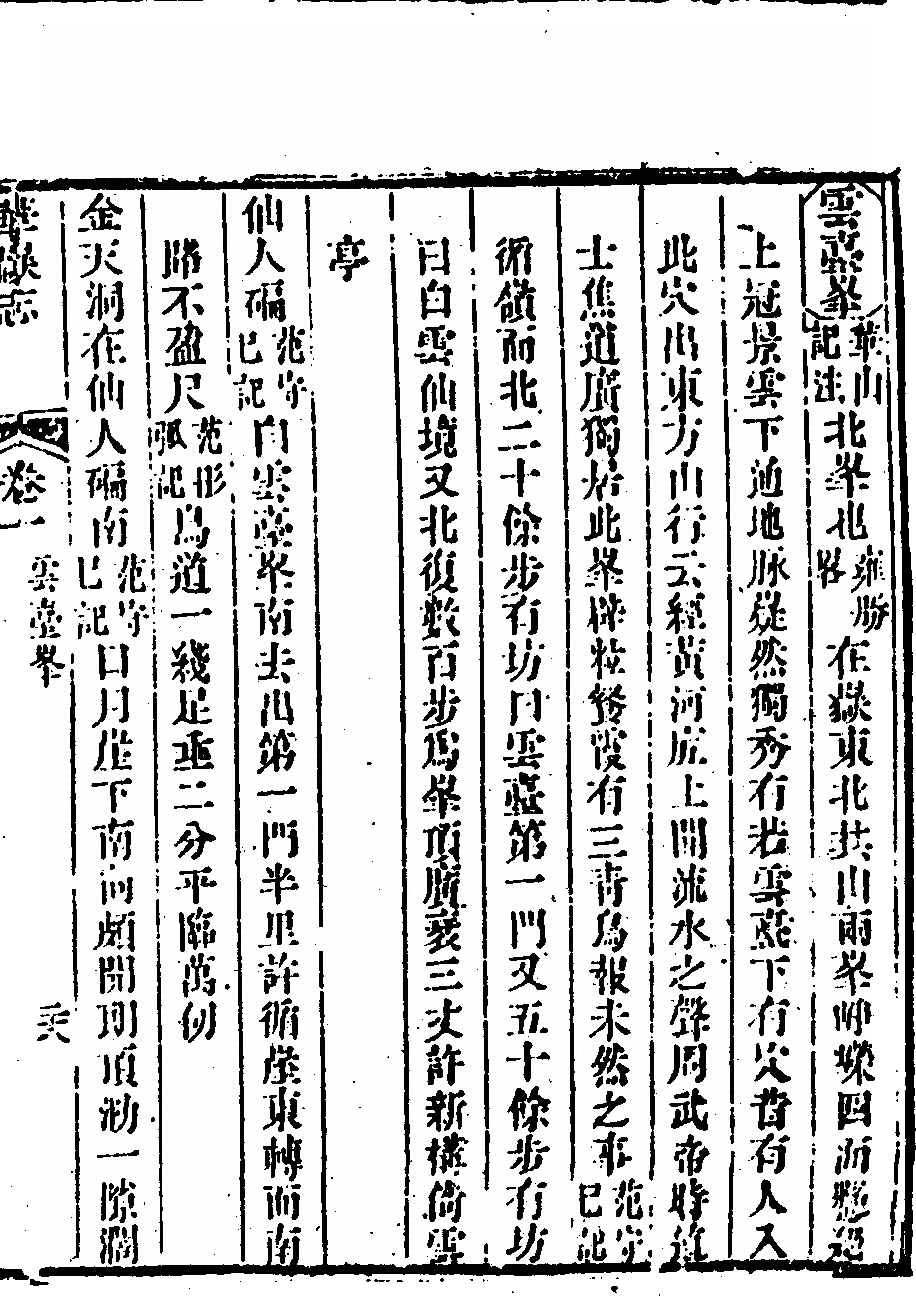 雲臺峯華山記注北峯也雍勝畧在嶽東北共山兩峯崢嶸四面懸絕
上冠景雲下通地脉從然獨秀有若雲臺下有穴昔有人入
此穴出東方山行云經黃河底上聞流水之聲周武帝時道
士焦道廣獨居此峯辟粒餐霞有三青鳥報未然之事范守己記
循嶺而北二十餘步有坊曰雲臺第一門又五十餘步有坊
曰白雲仙境又北復數百步爲峯頂廣袤三丈許新構倚雲
亭
仙人碥范守己記自雲臺峯南去出第一門半里許循崖東轉而南
路不盈尺范形弧記鳥道一綫足垂二分平臨萬仞
金天洞在仙人碥南范守己記日月崖下南向頗開朗頂泐一隙濶
華嶽志
卷一
雲臺峯